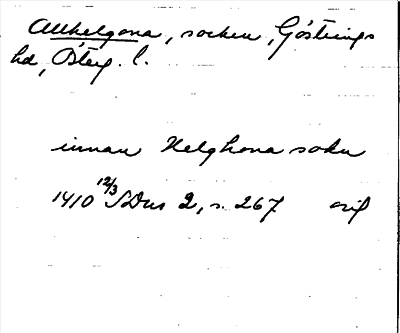 Allhelgona, socken, Göstrings
hd, Österg. l.
innan Helghona sokn
1410 12/3 SDns 2, s. 267 orig